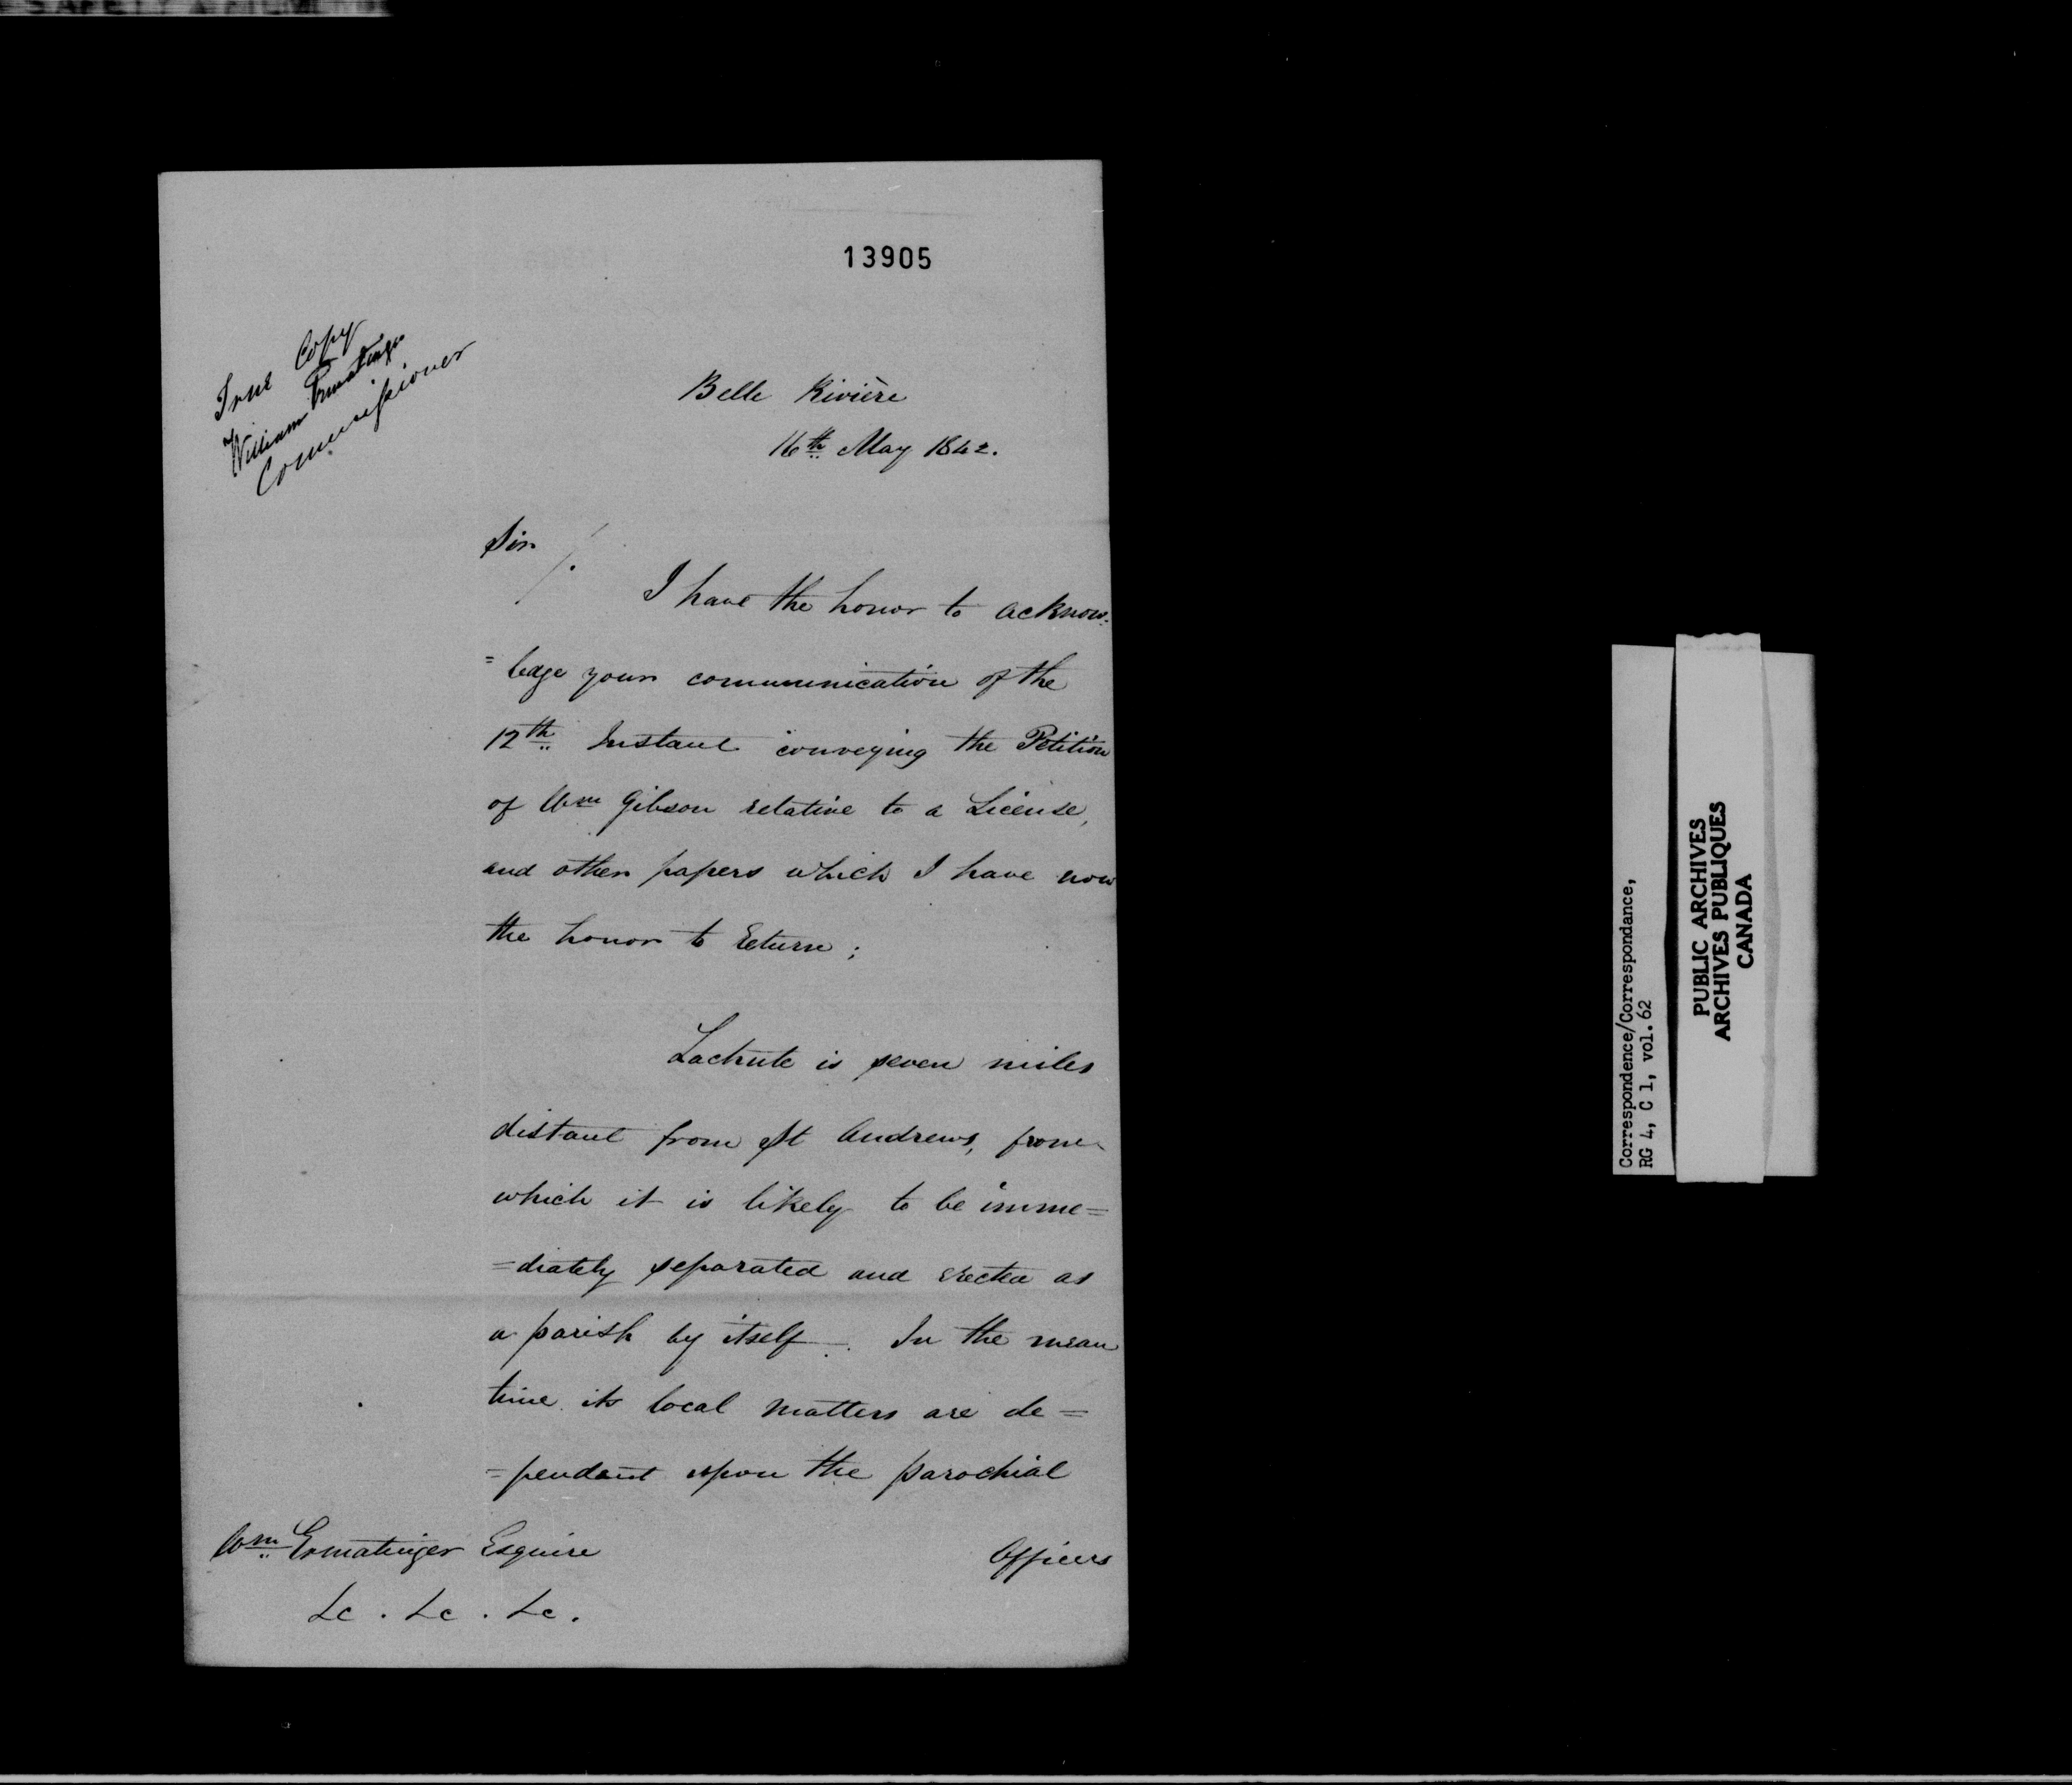 13905
True Copy
William Ermatinger
Commissioner
Belle Rivière
16th May 1842.
Sir /.
I have the honor to acknow=
=ledge your communication of the
12th Instant conveying the Petition
of Wm Gibson relative to a License,
and other papers which I have now
the honor to return;
Lachute is seven miles
distant from St Andrews, from
which it is likely to be imme=
=diately separated and erected as
a parish by itself. In the mean
time its local matters are de=
=pendant upon the parochial
Officers
Wm Ermatinger Esquire
&c. &c. &c.
Correspondence/Correspondance,
RG 4, C 1, vol. 62
PUBLIC ARCHIVES
ARCHIVES PUBLIQUES
CANADA